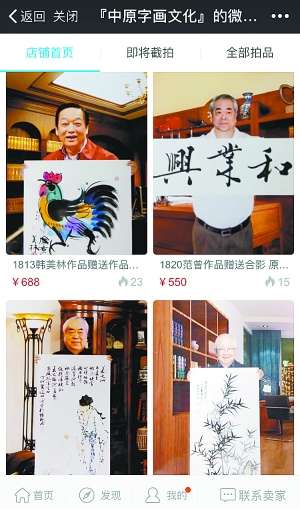 返回 关闭 『中原字画文化』的微…
店铺首页 即将截拍 全部拍品
興業和
1813韩美林作品赠送作品…
¥688 23
1820范曾作品赠送合影 原…
¥550 15
首页 发现 我的 联系卖家